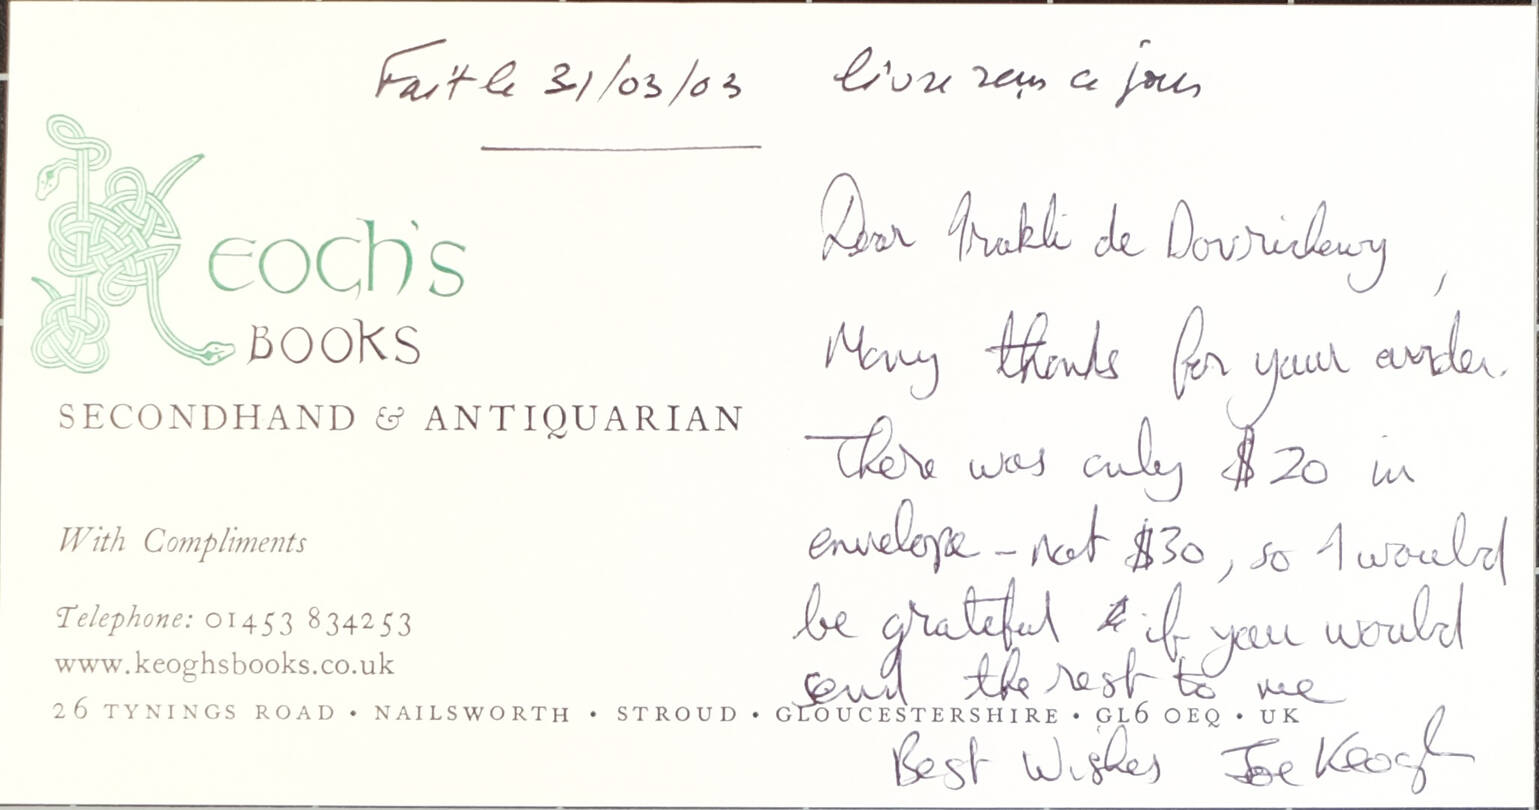 Fait le 31/03/03 livre reçu ce jour
KEOGH'S
BOOKS
SECONDHAND & ANTIQUARIAN
With Compliments
Telephone: 01453 834253
www.keoghsbooks.co.uk
26 TYNINGS ROAD • NAILSWORTH • STROUD • GLOUCESTERSHIRE • GL6 0EQ • UK
Dear Irakli de Davrichewy,
Many thanks for your order.
There was only $20 in
envelope - not $30, so I would
be grateful if you would
send the rest to me
Best Wishes Joe Keogh